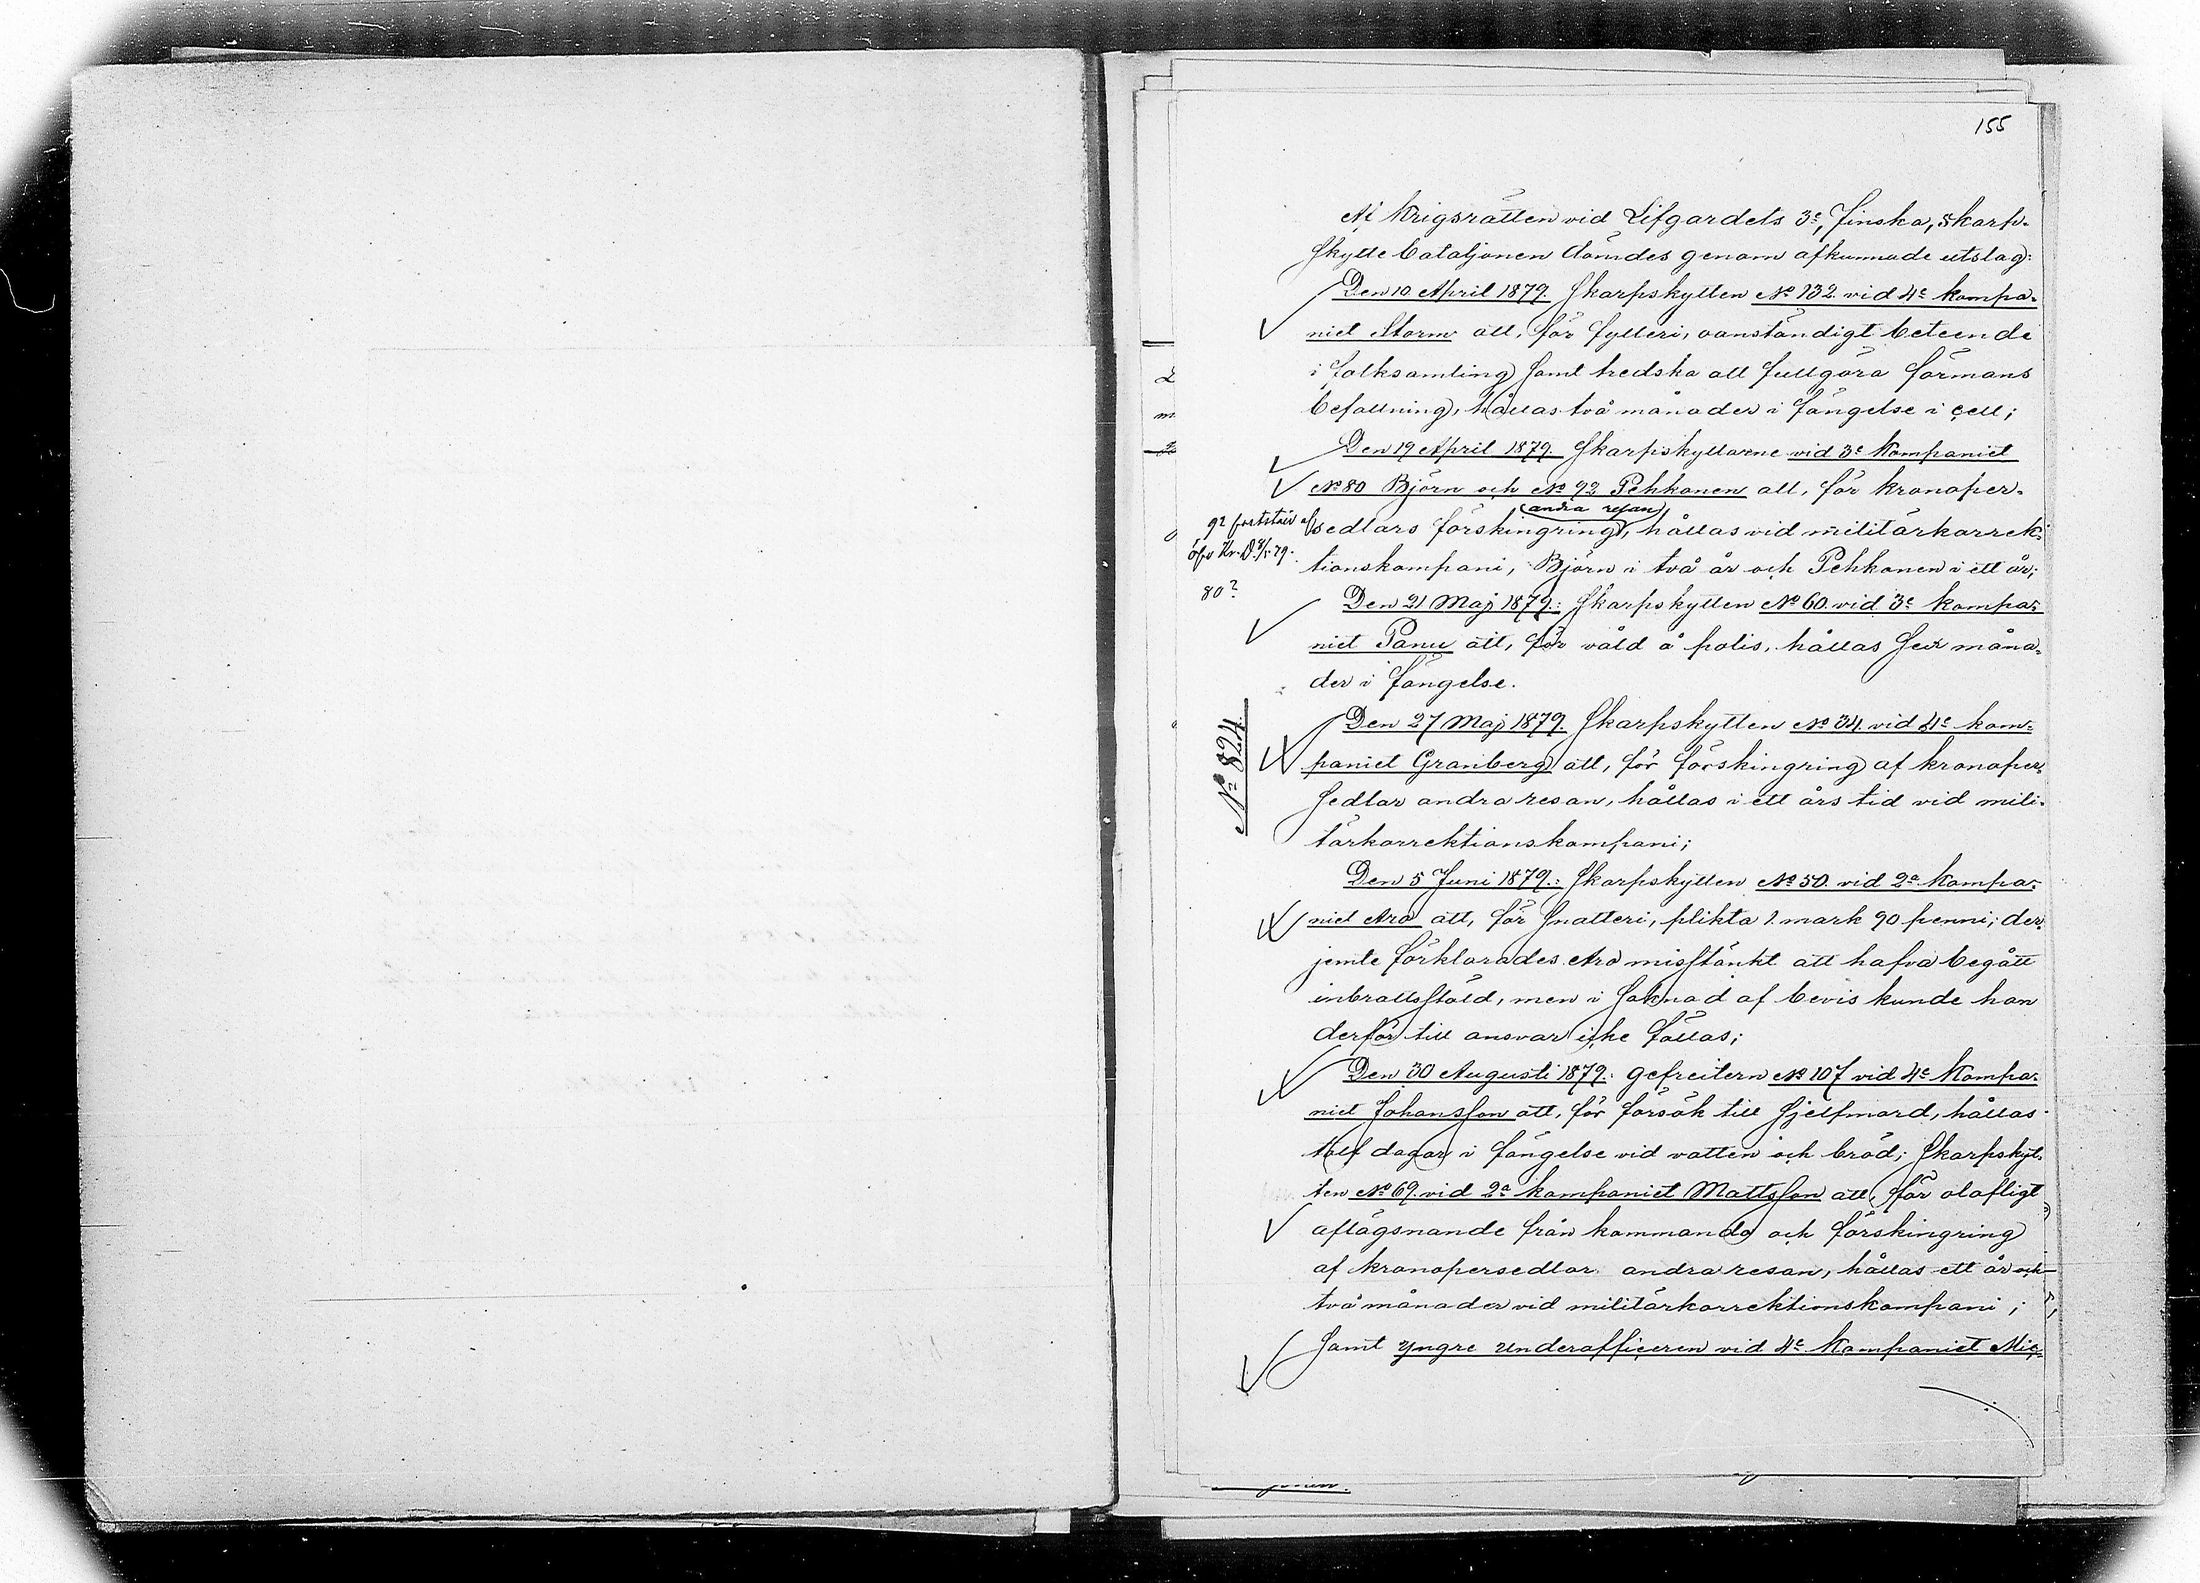 155
Af Krigsrätten vid Lifgardets 3e, Finska, Skarp-
skytte bataljonen dömdes genom afkunnade utslag:
Den 10 April 1879. Skarpskytten No 132 vid 4e Kompa-
niet Storm att, för fylleri, oanständigt beteende
i folksamling samt tredska att fullgöra förmans
befallning, hållas två månader i fängelse i cell;
Den 19 April 1879. Skarpskyttarne vid 3e Kompaniet
No 80 Björn och No 92 Pehkonen att, för kronoper-
andra resan
sedlars förskingring, hållas vid militärkorrek-
tionskompani, Björn i två år och Pehkonen i ett år;
80?
Den 21 Maj 1879.: Skarpskytten No 60 vid 3e Kompa-
niet Panu att, för våld å polis, hållas sex måna-
der i fängelse.
No 824.
Den 27 Maj 1879. Skarpskytten No 34 vid 4e kom-
paniet Granberg att, för förskingring af kronoper-
sedlar andra resan, hållas i ett års tid vid mili-
tärkorrektionskompani;
Den 5 Juni 1879.: Skarpskytten No 50 vid 2a Kompa-
niet Aro att, för snatteri, plikta 1 mark 90 penni; der-
jemte förklarades Aro misstänkt att hafva begått
inbrottsstöld, men i saknad af bevis kunde han
derför till ansvar icke fällas;
Den 30 Augusti 1879.: gefreitern No 107 vid 4e Kompa-
niet Johansson att, för försök till sjelfmord, hållas
tolf dagar i fängelse vid vatten och bröd; Skarpskyt-
ten No 69 vid 2a kompaniet Mattsson att, för olofligt
aflägsnande från kommando och förskingring
af kronopersedlar andra resan, hållas ett år och
två månader vid militärkorrektionskompani;
samt yngre Underofficeren vid 4e Kompaniet Mic-